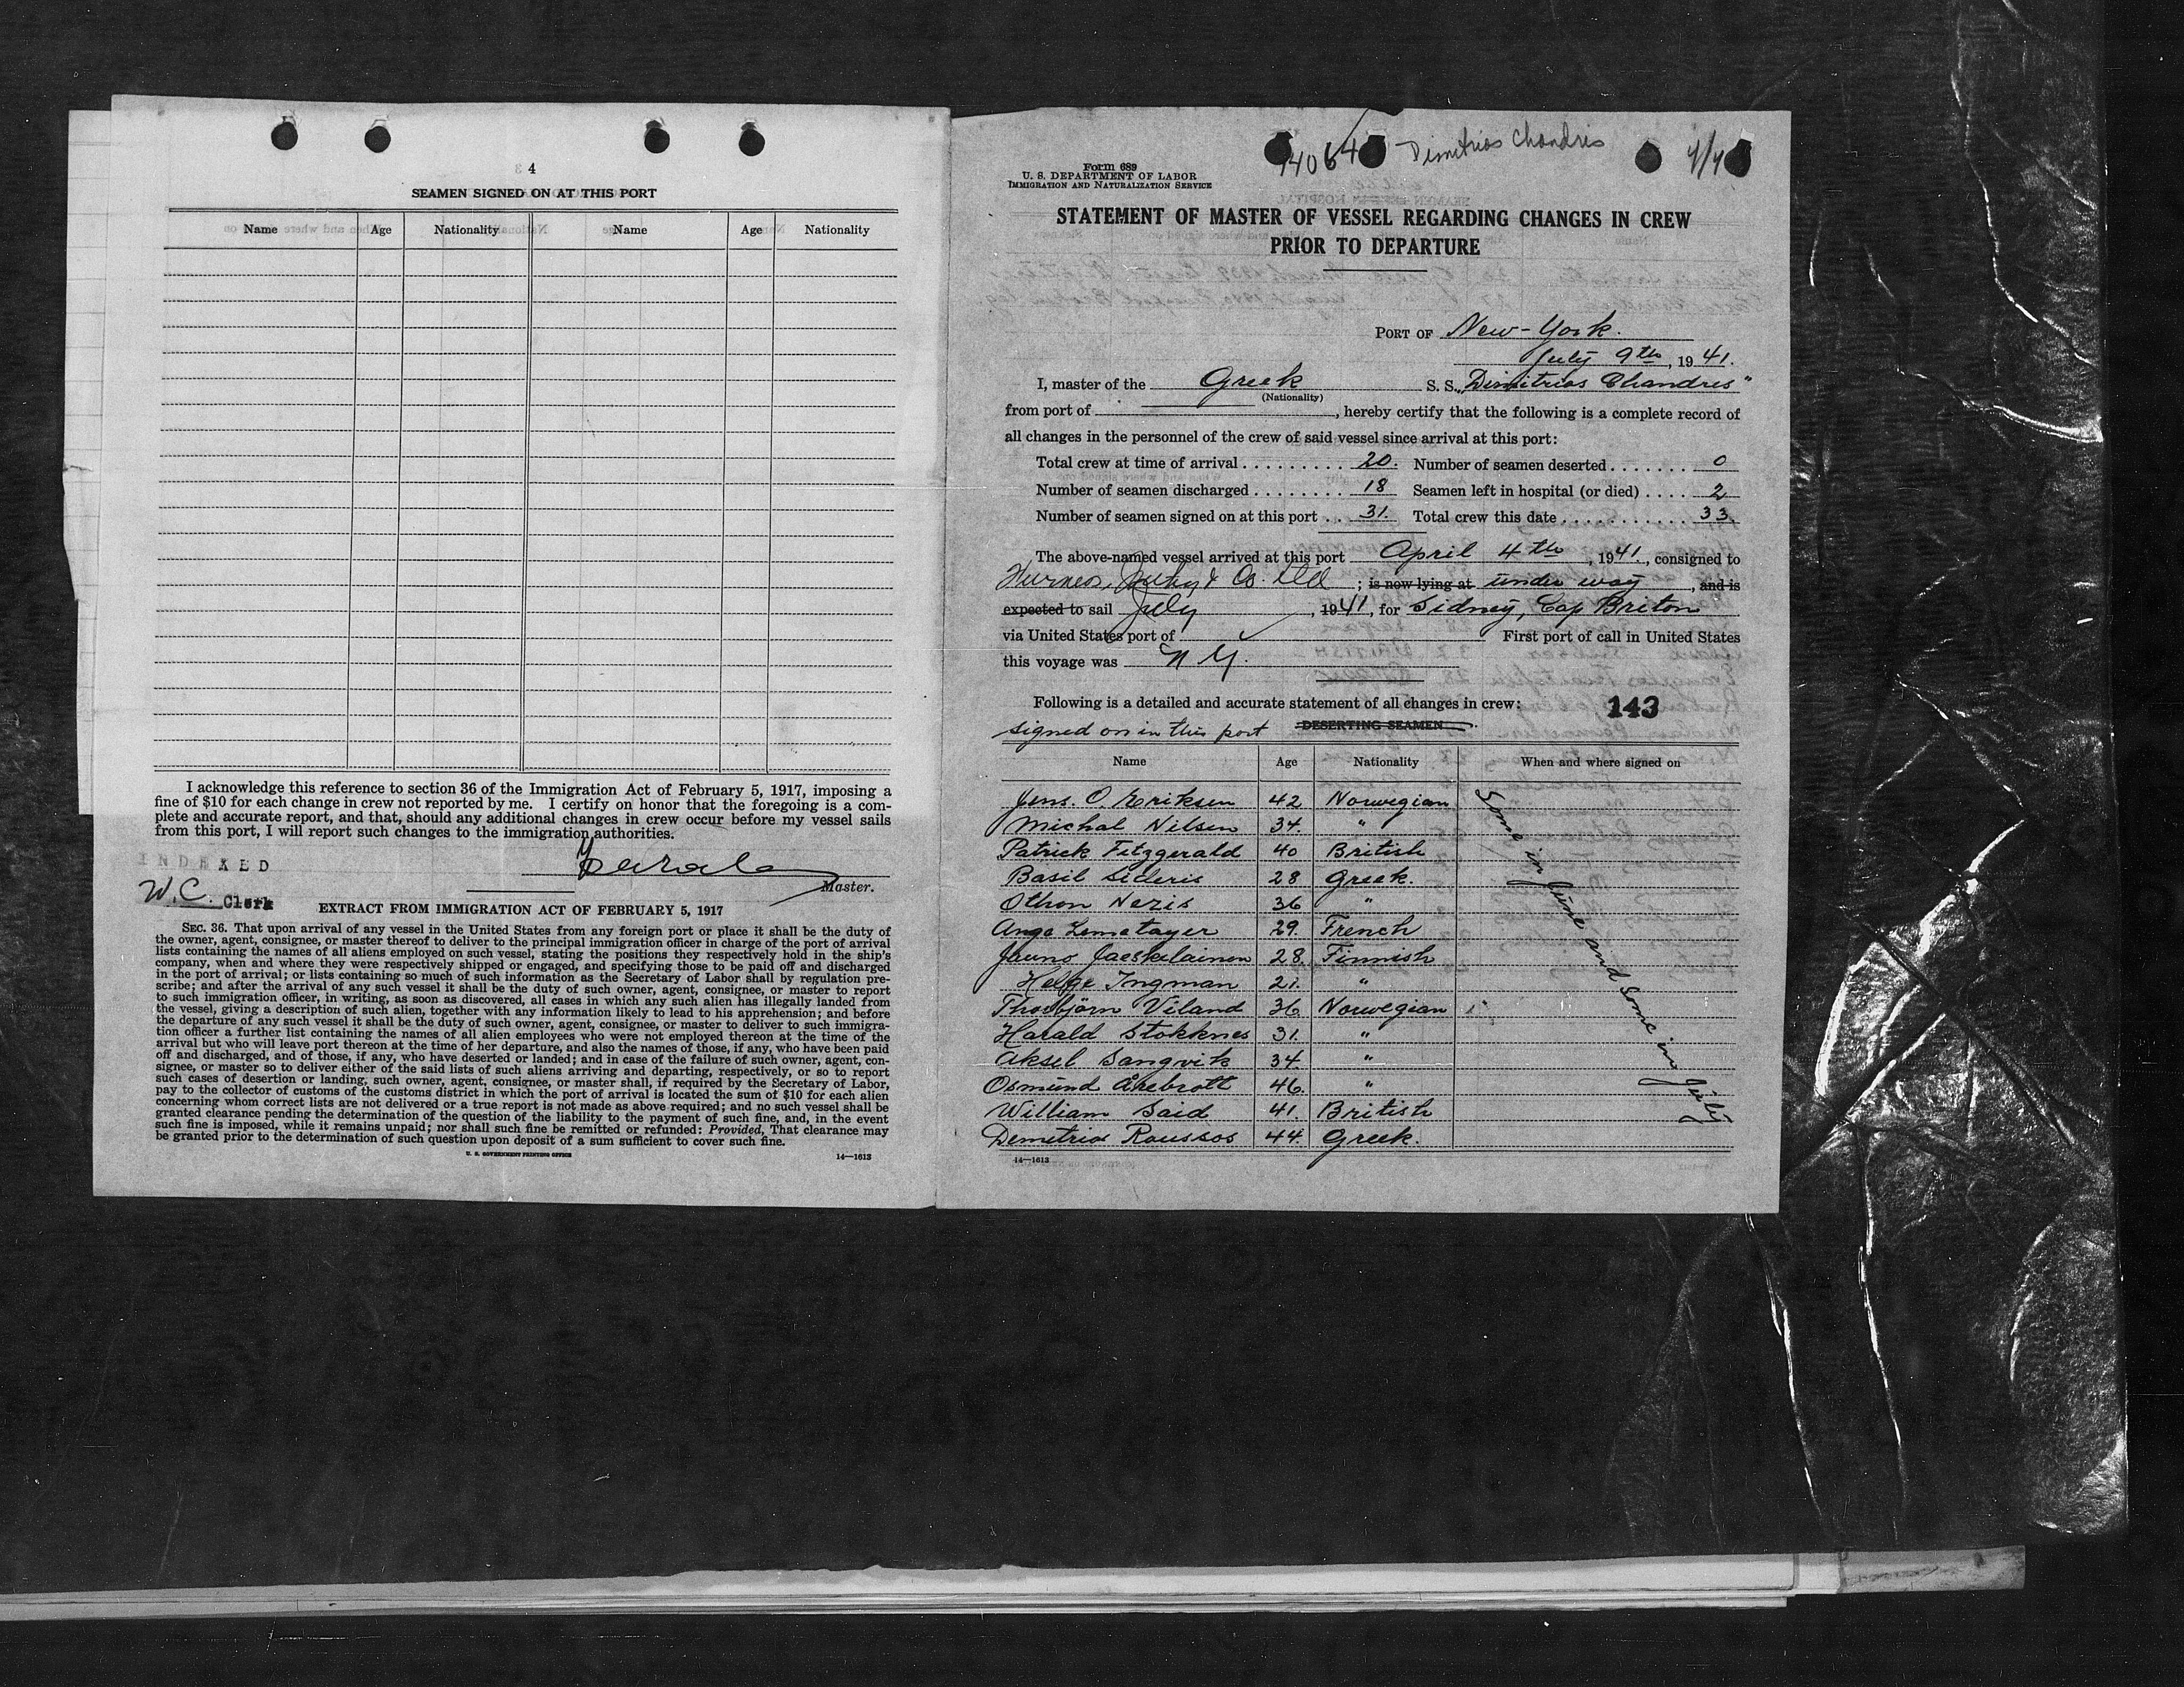 4
SEAMEN SIGNED ON AT THIS PORT
Name Age Nationality Name Age Nationality
I acknowledge this reference to section 36 of the Immigration Act of February 5, 1917, imposing a
fine of $10 for each change in crew not reported by me. I certify on honor that the foregoing is a com-
plete and accurate report, and that, should any additional changes in crew occur before my vessel sails
from this port, I will report such changes to the immigration authorities.
INDEXED
Master.
W.C. Clerk
EXTRACT FROM IMMIGRATION ACT OF FEBRUARY 5, 1917
SEC. 36. That upon arrival of any vessel in the United States from any foreign port or place it shall be the duty of
the owner, agent, consignee, or master thereof to deliver to the principal immigration officer in charge of the port of arrival
lists containing the names of all aliens employed on such vessel, stating the positions they respectively hold in the ship's
company, when and where they were respectively shipped or engaged, and specifying those to be paid off and discharged
in the port of arrival; or lists containing so much of such information as the Secretary of Labor shall by regulation pre-
scribe; and after the arrival of any such vessel it shall be the duty of such owner, agent, consignee, or master to report
to such immigration officer, in writing, as soon as discovered, all cases in which any such alien has illegally landed from
the vessel, giving a description of such alien, together with any information likely to lead to his apprehension; and before
the departure of any such vessel it shall be the duty of such owner, agent, consignee, or master to deliver to such immigra-
tion officer a further list containing the names of all alien employees who were not employed thereon at the time of the
arrival but who will leave port thereon at the time of her departure, and also the names of those, if any, who have been paid
off and discharged, and of those, if any, who have deserted or landed; and in case of the failure of such owner, agent, con-
signee, or master so to deliver either of the said lists of such aliens arriving and departing, respectively, or so to report
such cases of desertion or landing, such owner, agent, consignee, or master shall, if required by the Secretary of Labor,
pay to the collector of customs of the customs district in which the port of arrival is located the sum of $10 for each alien
concerning whom correct lists are not delivered or a true report is not made as above required; and no such vessel shall be
granted clearance pending the determination of the question of the liability to the payment of such fine, and, in the event
such fine is imposed, while it remains unpaid; nor shall such fine be remitted or refunded: Provided, That clearance may
be granted prior to the determination of such question upon deposit of a sum sufficient to cover such fine.
U. S. GOVERNMENT PRINTING OFFICE 14—1613
Dimitrios Chandris
Form 689
U. S. DEPARTMENT OF LABOR
IMMIGRATION AND NATURALIZATION SERVICE
STATEMENT OF MASTER OF VESSEL REGARDING CHANGES IN CREW
PRIOR TO DEPARTURE
PORT OF New-York.
July 9th, 1941.
I, master of the Greek S. S. "Dimitrios Chandris"
(Nationality)
from port of , hereby certify that the following is a complete record of
all changes in the personnel of the crew of said vessel since arrival at this port:
Total crew at time of arrival 20. Number of seamen deserted 0
Number of seamen discharged 18 Seamen left in hospital (or died) 2
Number of seamen signed on at this port 31. Total crew this date 33.
The above-named vessel arrived at this port April 4th, 1941., consigned to
& Co. Ltd ; is now lying at under way, and is
expected to sail July, 1941, for Sidney, Cap Briton
via United States port of First port of call in United States
this voyage was N Y.
Following is a detailed and accurate statement of all changes in crew: 143
signed on in this port DESERTING SEAMEN
Name Age Nationality When and where signed on
Jens. O. Eriksen 42 Norwegian
Michal Nilsen 34. "
Patrick Fitzgerald 40 British
Basil Sideris 28 Greek.
Othon Nezis 36 "
Ange Lemetayer 29. French
Jauno Jaeskelainen 28. Finnish
Helge Ingman 21. "
Thorbjörn Viland 36 Norwegian
Harald Stokknes 31. "
Aksel Sangvik 34. "
Osmund Årebrott 46. "
William Said 41. British
Demetrios Roussos 44. Greek.
Some in June and Some in July
14—1613